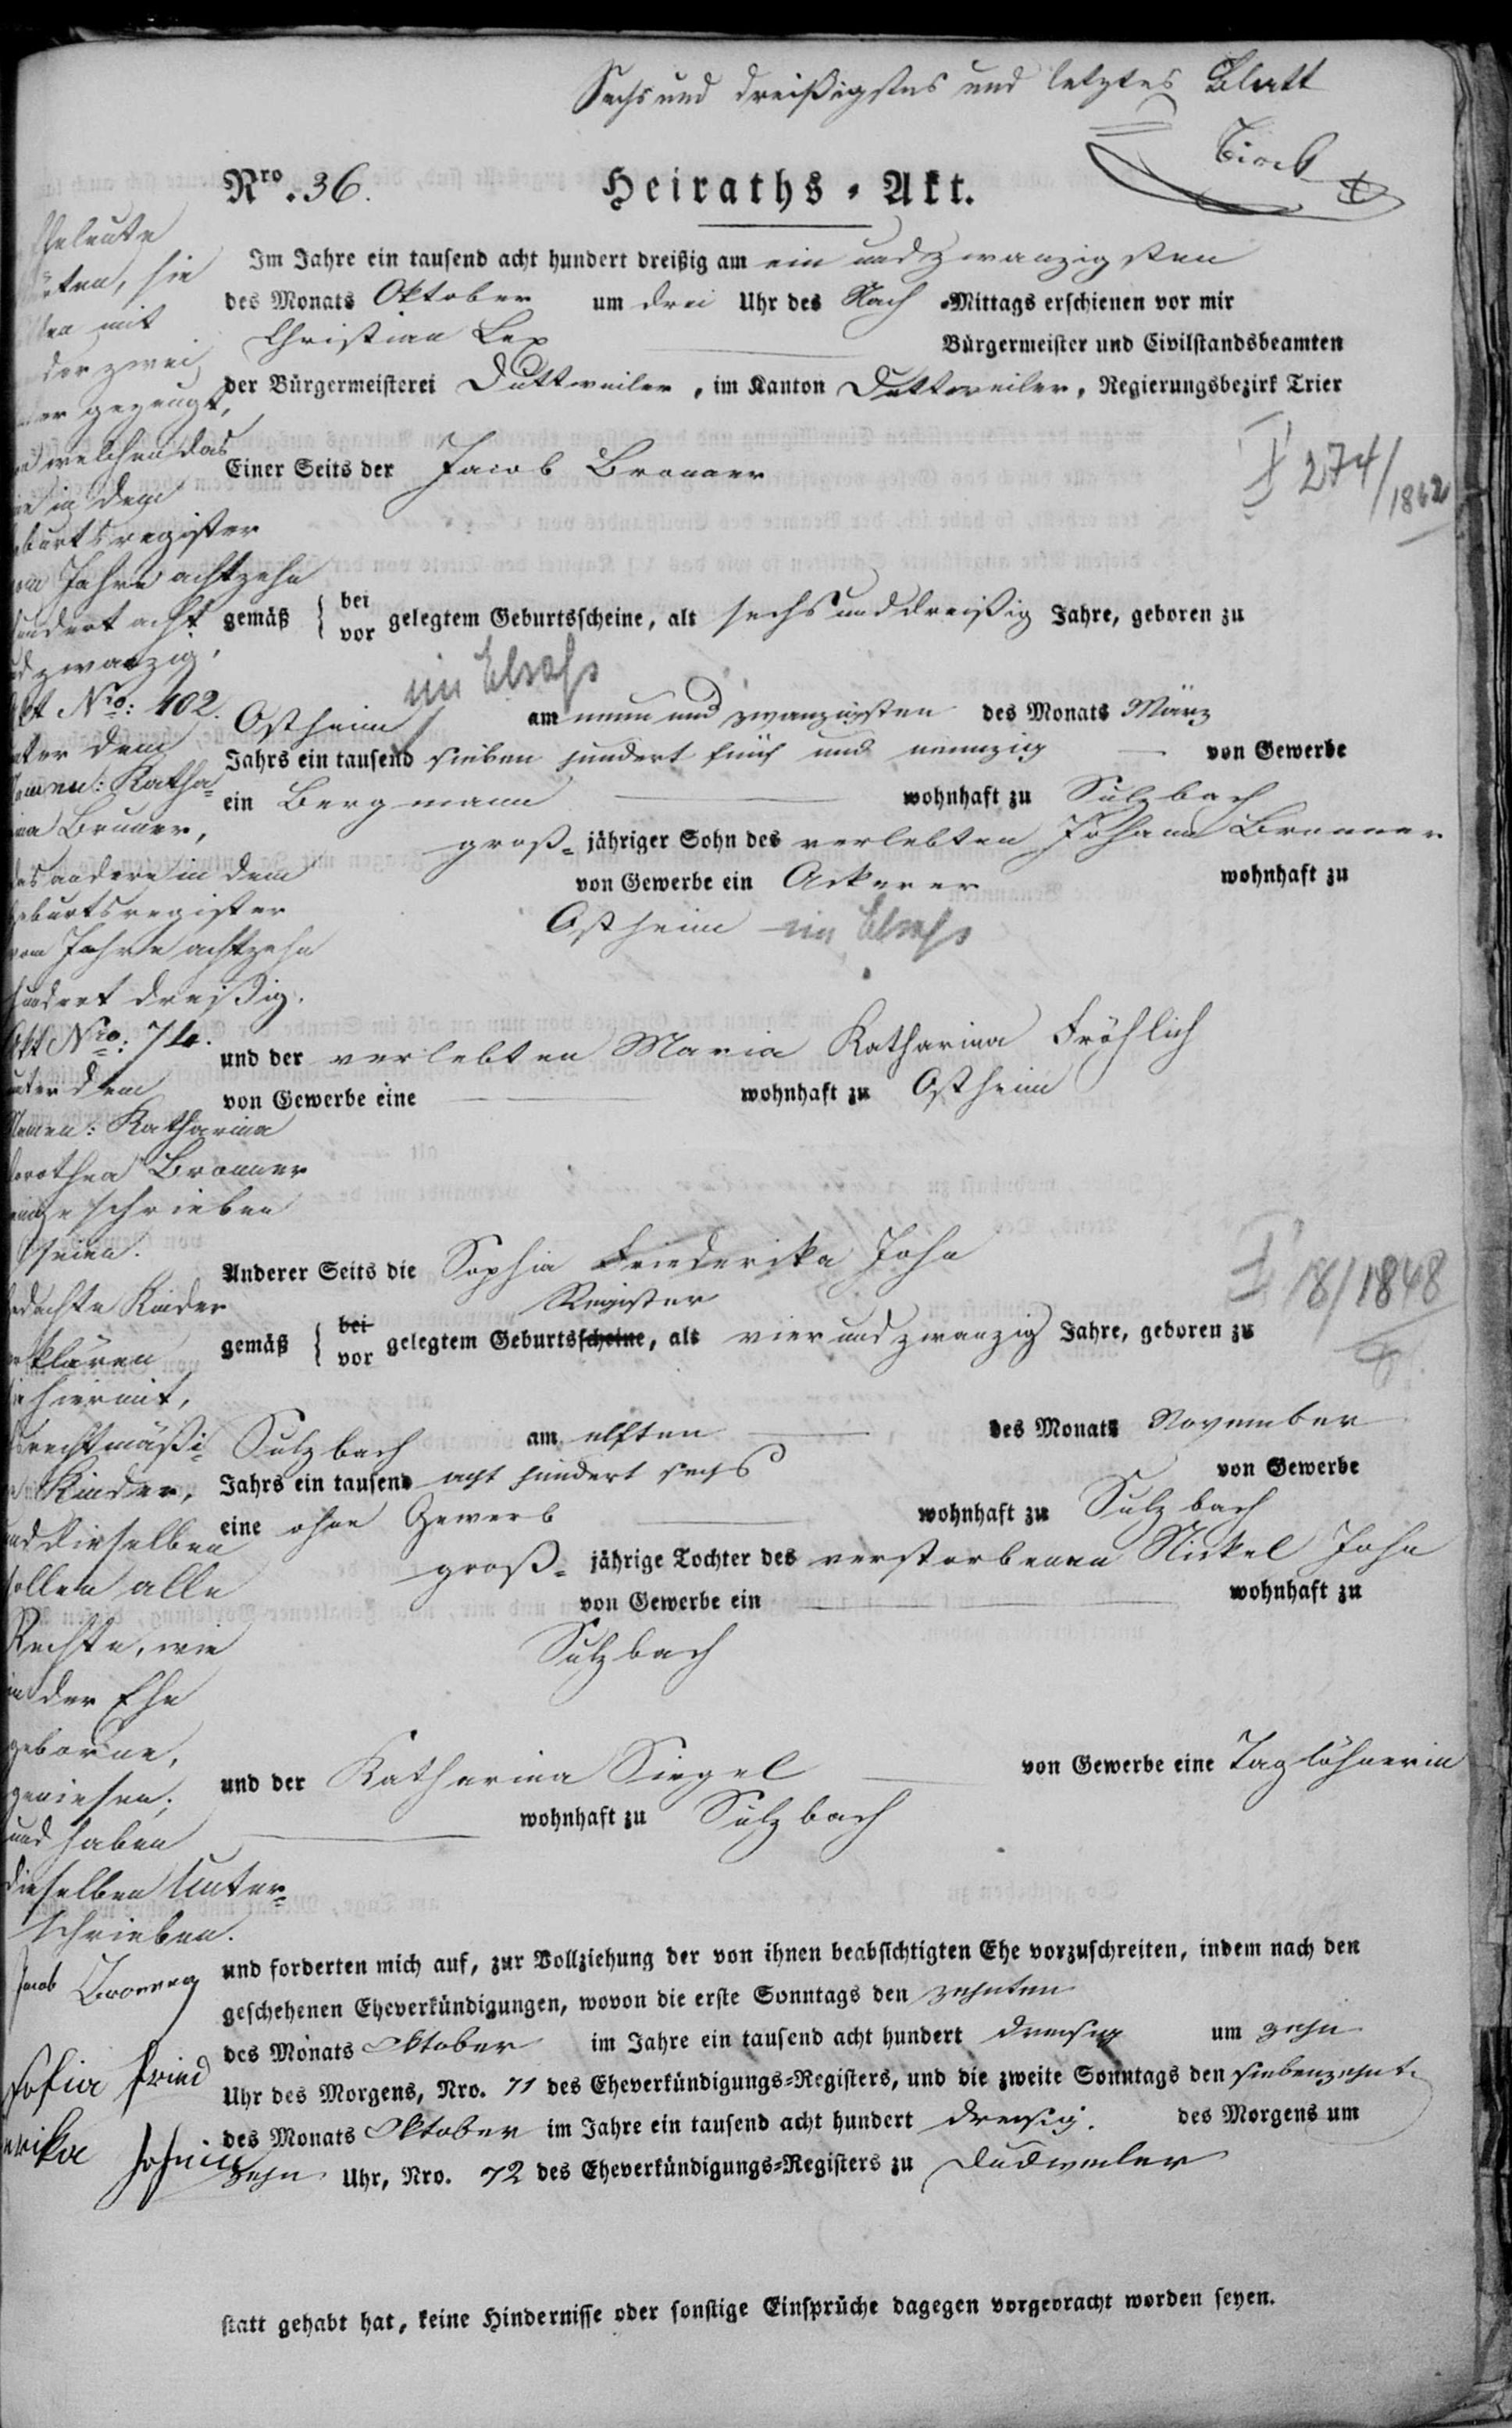 Sechs und dreißigstes und letztes Blatt
Nro. 36.
Heiraths-Akt.
Im Jahre ein tausend acht hundert dreißig am ein und zwanzigsten
des Monats Oktober um drei Uhr des Nach Mittags erschienen vor mir
Christian Lex Bürgermeister und Civilstandsbeamten
der Bürgermeisterei Duttweiler, im Kanton Duttweiler, Regierungsbezirk Trier
Einer Seits der Jacob Bronner
I 274/1862
gemäß { bei vor gelegtem Geburtsscheine, alt sechs und dreißig Jahre, geboren zu
im Elsaß
Ostheim am neun und zwanzigsten des Monats März
Jahrs ein tausend sieben hundert fünf und neunzig von Gewerbe
ein Bergmann wohnhaft zu Sulzbach
groß- jähriger Sohn des verlebten Johann Bronner
von Gewerbe ein Ackerer wohnhaft zu
Ostheim im Elsaß
und der verlebten Maria Katharina Fröhlich
von Gewerbe eine wohnhaft zu Ostheim
Anderer Seits die Sophia Friederika John
Register
I 18/1848
gemäß { bei vor gelegtem Geburtsscheine, alt vier und zwanzig Jahre, geboren zu
Sulzbach am elften des Monats November
Jahrs ein tausend acht hundert sechs von Gewerbe
eine ohne Gewerb wohnhaft zu Sulzbach
groß- jährige Tochter des verstorbenen Nickel John
von Gewerbe ein wohnhaft zu
Sulzbach
und der Katharina Siegel von Gewerbe eine Taglöhnerin
wohnhaft zu Sulzbach
und forderten mich auf, zur Vollziehung der von ihnen beabsichtigten Ehe vorzuschreiten, indem nach den
geschehenen Eheverkündigungen, wovon die erste Sonntags den zehnten
des Monats Oktober im Jahre ein tausend acht hundert dreisig um zehn
Uhr des Morgens, Nro. 71 des Eheverkündigungs-Registers, und die zweite Sonntags den siebenzehnt
des Monats Oktober im Jahre ein tausend acht hundert dreisig. des Morgens um
zehn Uhr, Nro. 72 des Eheverkündigungs-Registers zu Dudweiler
statt gehabt hat, keine Hindernisse oder sonstige Einsprüche dagegen vorgebracht worden seyen.
Eheleute
sie
mit
der zwei
gezeugt,
welchen das
in dem
burtsregister
Jahre achtzehn
hundert acht
zwanzig,
Akt Nro: 102.
unter dem
Namen: Katha-
rina Bruner,
das andere in dem
Geburtsregister
vom Jahre achtzehn
hundert dreißig.
Akt Nro: 74.
unter dem
Namen: Katharina
Dorothea Bronner
eingeschrieben
seien.
Gedachte Kinder
erklären
sie hiermit,
rechtmäßi-
ge Kinder,
und dieselben
sollen alle
Rechte, wie
in der Ehe
geborne,
geniesen;
und haben
dieselben Unter-
schrieben.
Jacob Bronner
Sofia Fried
erika Johnin